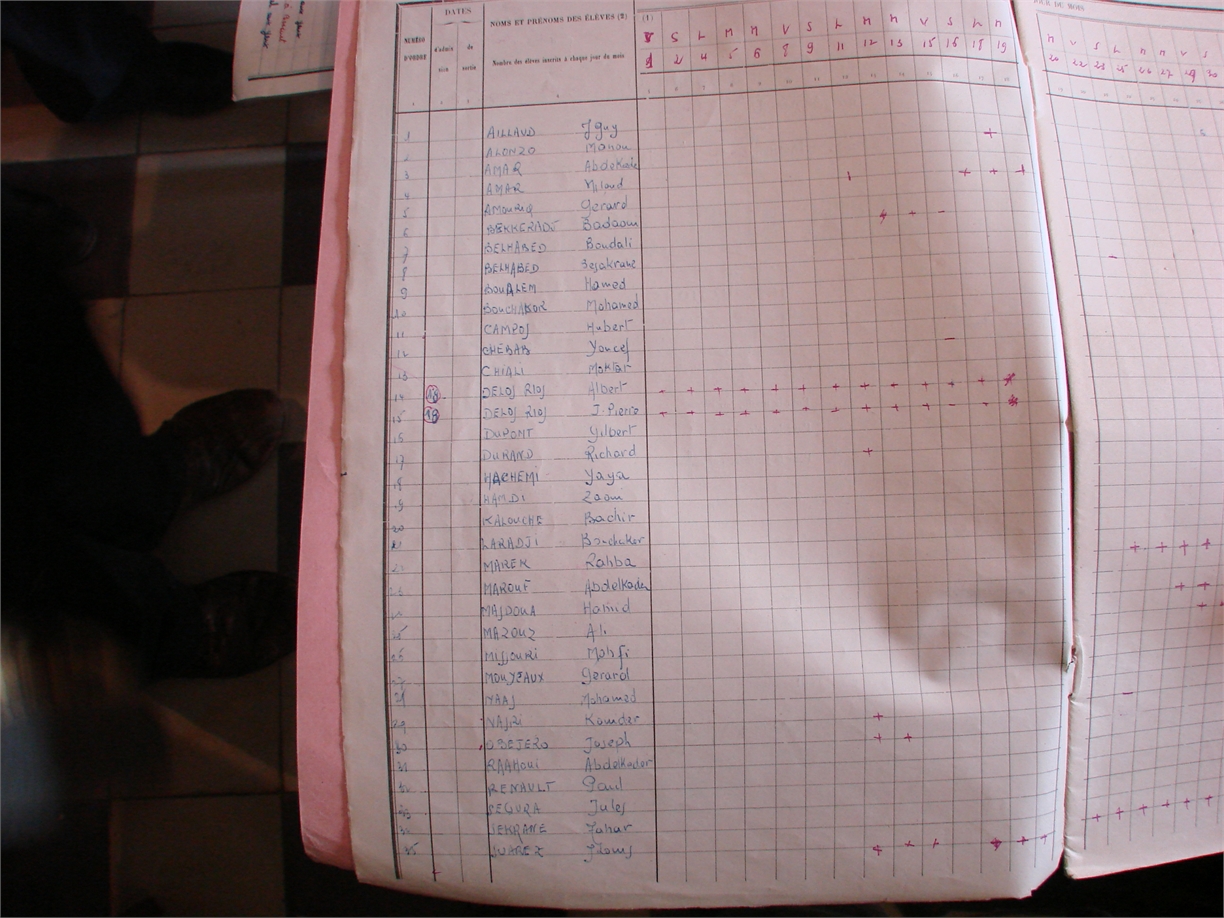 DATES
JOUR DU MOIS
NUMÉRO D'ORDRE
d'admis sion
de sortie
NOMS ET PRÉNOMS DES ÉLÈVES (2)
Nombre des élèves inscrits à chaque jour du mois
(1)
V S L M M V S L M M V S L M
1 2 4 5 6 8 9 11 12 13 15 16 18 19
M V S L M M V S
20 22 23 25 26 27 29 30
1 AILLAUD J Guy
2 ALONZO Manou
3 AMAR Abdelkade
4 AMAR Miloud
5 AMOURIQ Gerard
6 BEKKERADJ Badaoui
7 BELHABED Boudali
8 BELHABED
9 BOUALEM Hamed
10 BOUCHAKOR Mohamed
11 CAMPOS Hubert
12 CHEBAB Youcef
13 CHIALI Moktar
14 18 DELOS RIOS Albert
15 19 DELOS RIOS J. Pierre
16 DUPONT Gilbert
17 DURAND Richard
18 HACHEMI Yaya
19 HAMDI Zaoui
20 KALOUCHE Bachir
21 LARADJI Boubaker
MAREK Rahba
MAROUF Abdelkader
MAJDOUA Hamid
25 MAZOUZ Ali
26 MISSOURI
27 MOUYEAUX Gerard
28 NAAS Mohamed
29 NASRI Kouider
30 OBEJERO Joseph
31 RAAHOUI Abdelkader
RENAULT Paul
33 SEGURA Jules
SEKRANE Tahar
35 SUAREZ